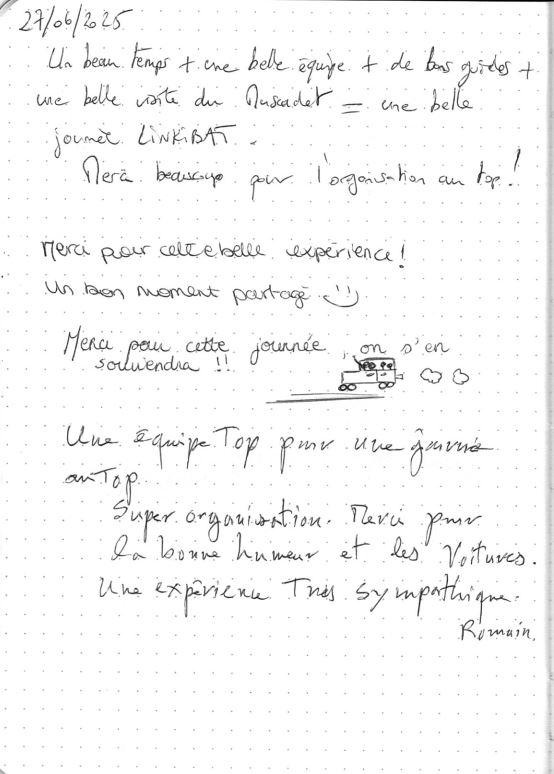 27/06/2025
Un beau temps + une belle équipe + de bons guides +
une belle visite du Muscadet = une belle
journée LINKIBAT.
Merci beaucoup pour l'organisation au top !
Merci pour cette belle expérience !
Un bon moment partagé
Merci pour cette journée, on s'en
souviendra !!
Une équipe Top pour une journée
au Top.
Super organisation. Merci pour
la bonne humeur et les Voitures.
Une expérience Très sympathique.
Romain.